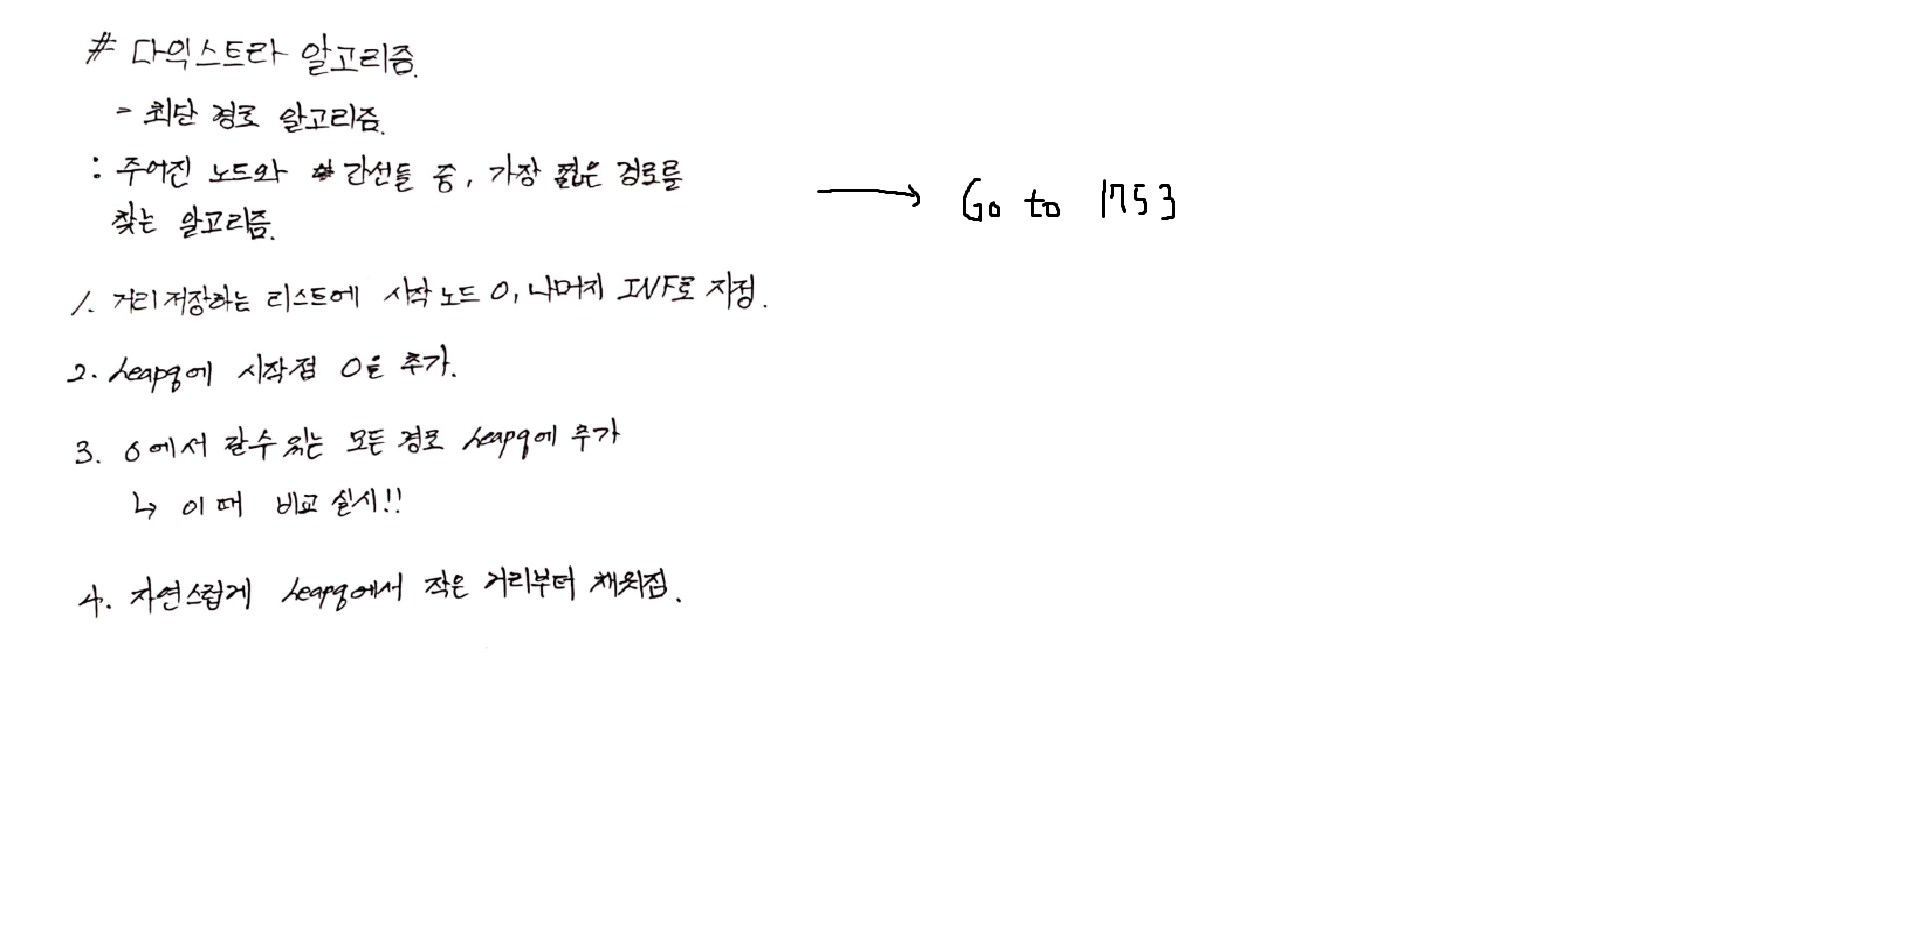 # 다익스트라 알고리즘.
- 최단 경로 알고리즘.
: 주어진 노드와 간선들 중, 가장 짧은 경로를
찾는 알고리즘.
→ Go to 1753
1. 거리 저장하는 리스트에 시작 노드 0, 나머지 INF로 지정.
2. heapq에 시작점 0을 추가.
3. 0에서 갈 수 있는 모든 경로 heapq에 추가
↳ 이 때 비교 실시!!
4. 자연스럽게 heapq에서 작은 거리부터 채워짐.